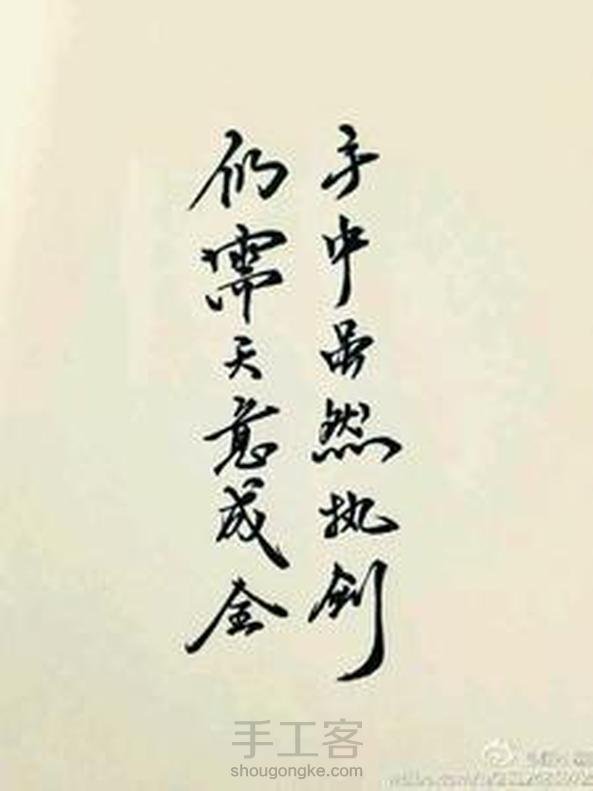 手中虽然执剑
仍需天意成全
手工客
shougongke.com